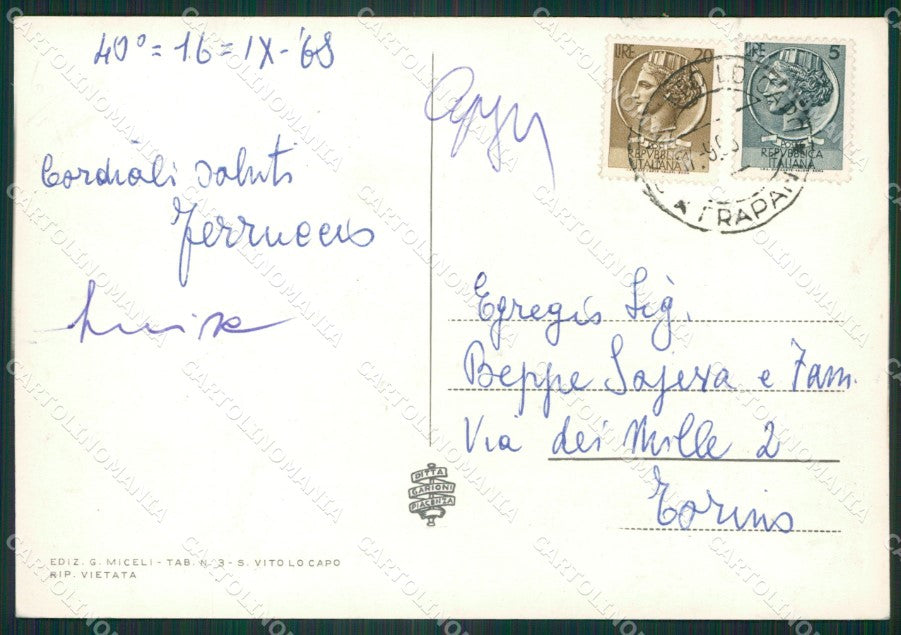 40° = 16 = IX - '68
Cordiali saluti
Ferruccio
Luisa
LIRE 20
POSTE
REPVBBLICA
ITALIANA
LIRE 5
POSTE
REPVBBLICA
ITALIANA
TRAPANI
Egregio Sig.
Beppe Sajeva e Fam.
Via dei Mille 2
Torino
DITTA
GARIONI
PIACENZA
EDIZ. G. MICELI - TAB. N. 3 - S. VITO LO CAPO
RIP. VIETATA
CARTOLINOMANIA